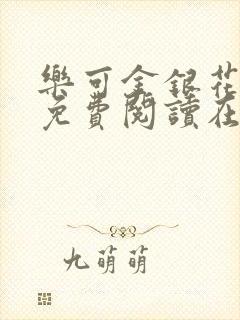 樂可金銀花
免費閱讀在
九萌萌